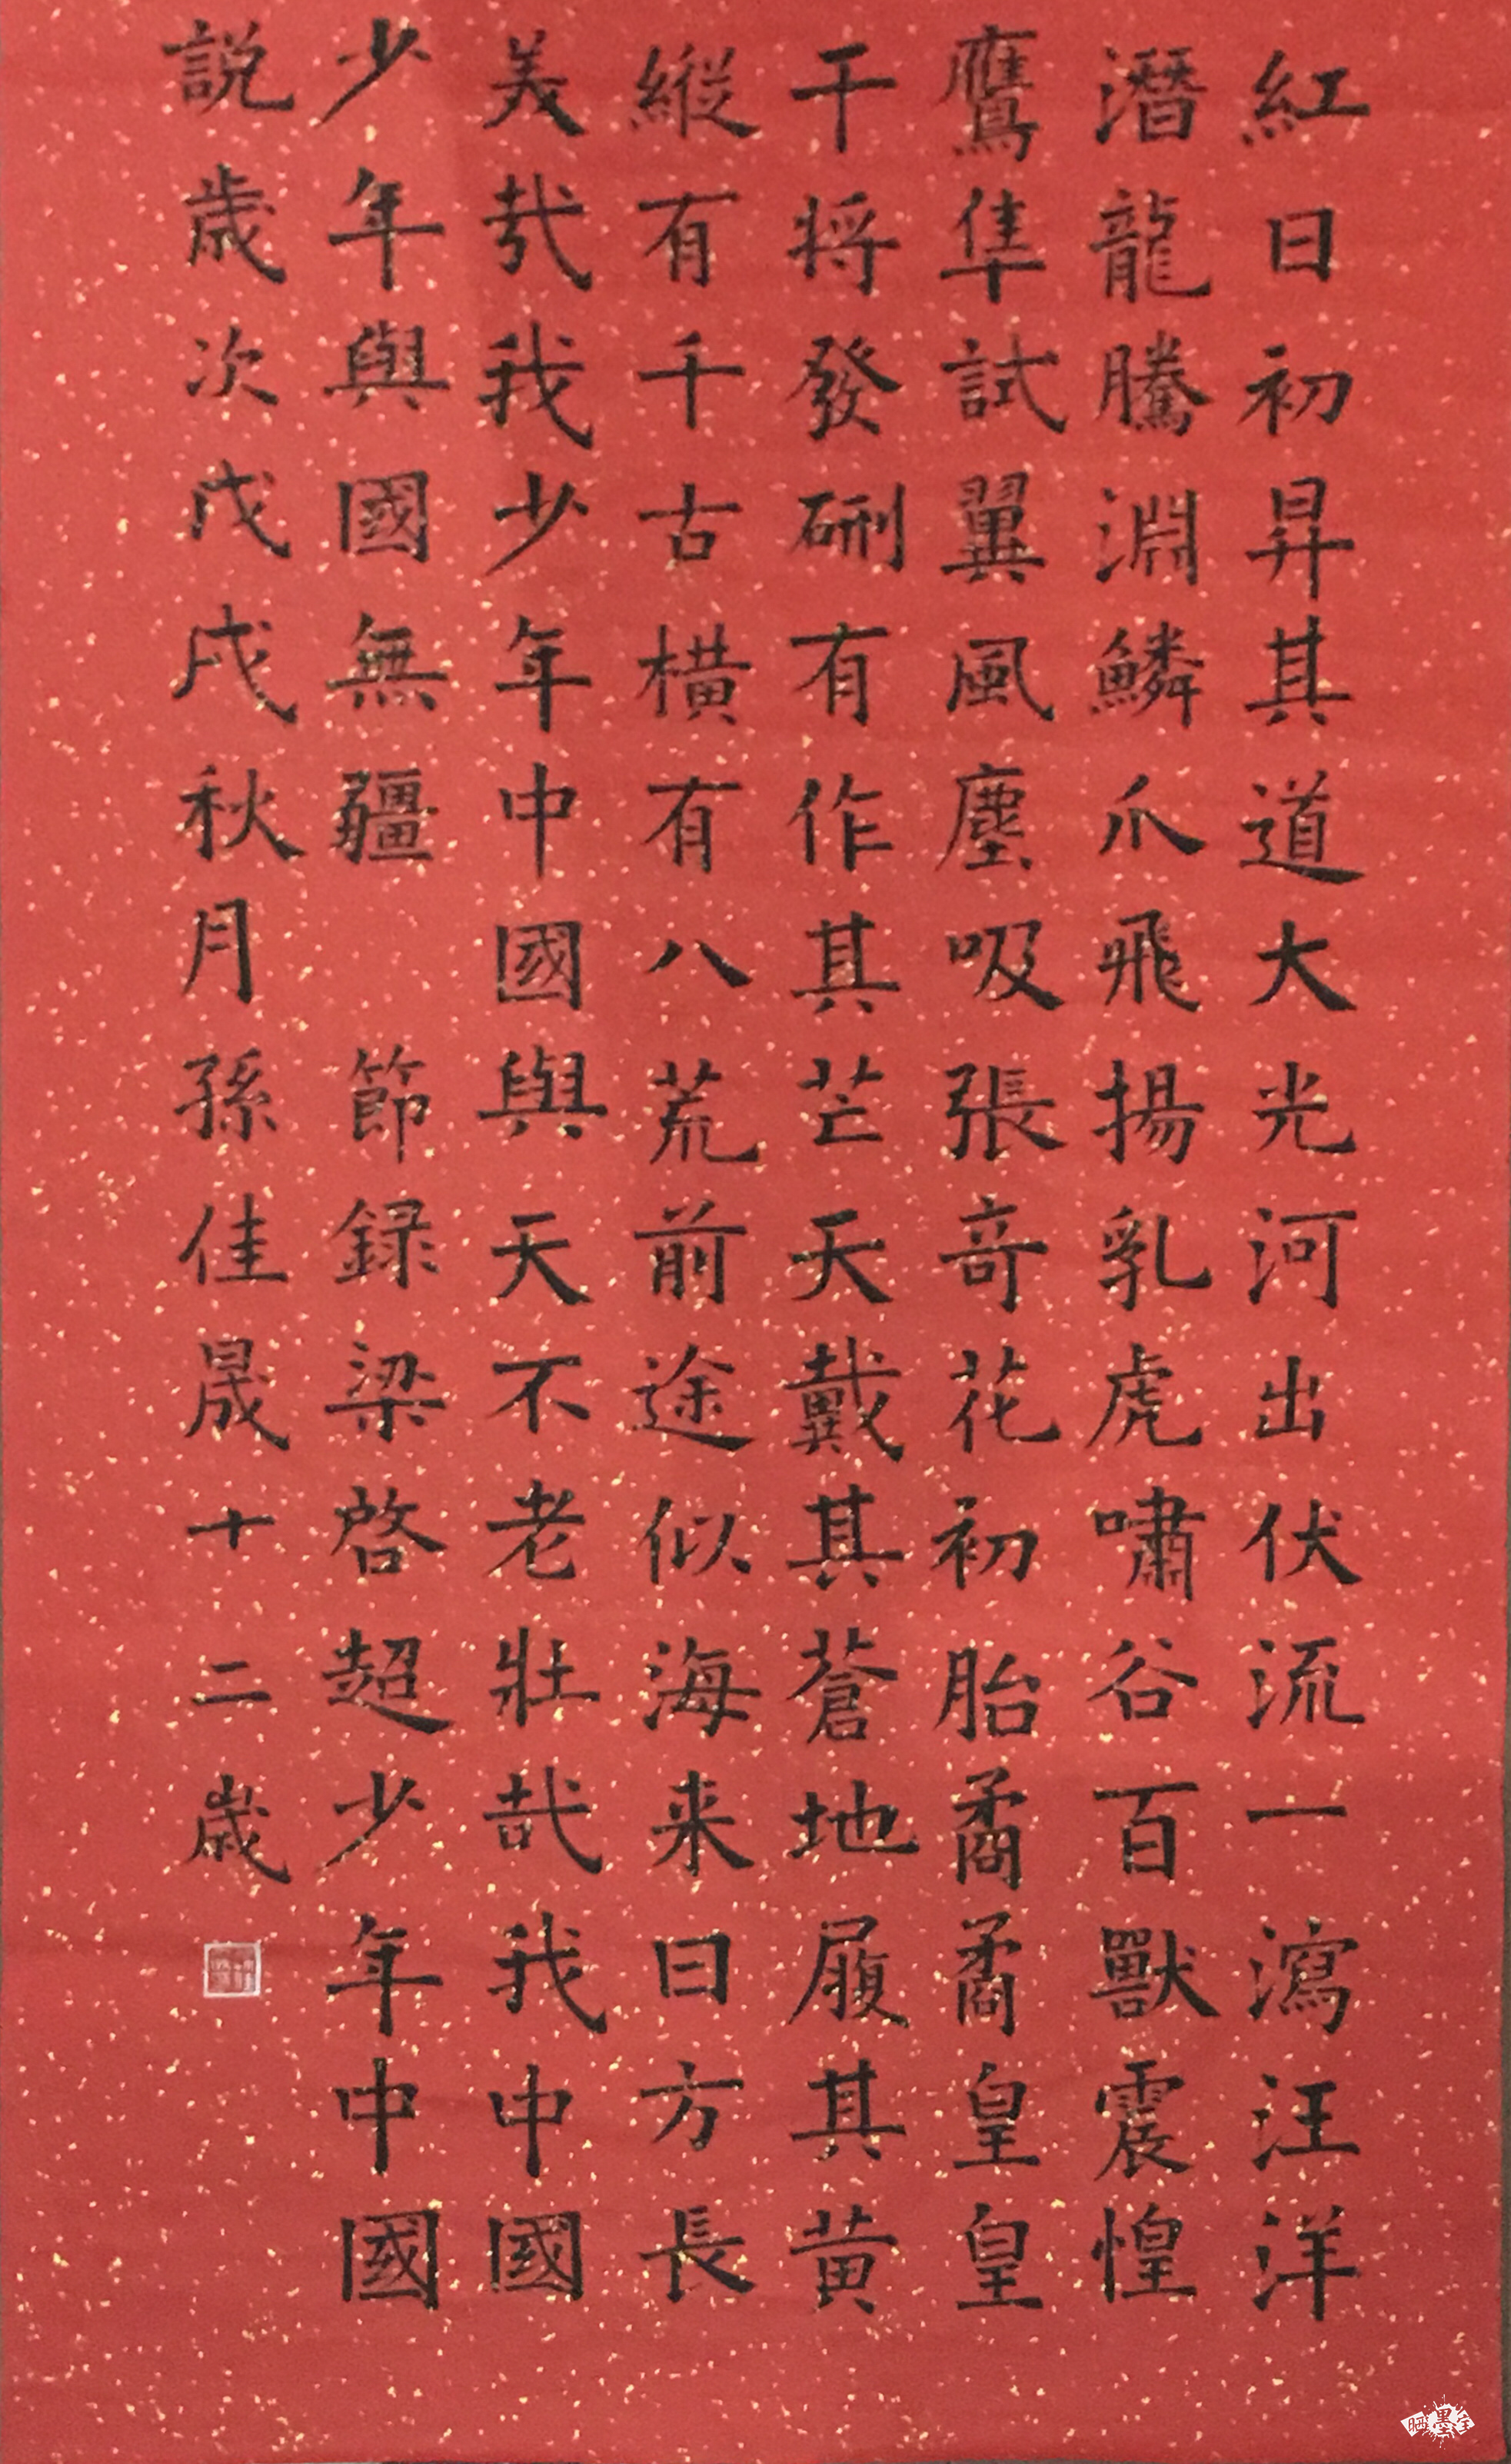 紅日初昇其道大光河出伏流一瀉汪洋
潛龍騰淵鱗爪飛揚乳虎嘯谷百獸震惶
鷹隼試翼風塵吸張奇花初胎矞矞皇皇
干将發硎有作其芒天戴其蒼地履其黃
縱有千古橫有八荒前途似海来日方長
美哉我少年中國與天不老壯哉我中國
少年與國無疆 節録梁啓超少年中國
説歲次戊戌秋月孫佳晟十二歲
晒墨宝